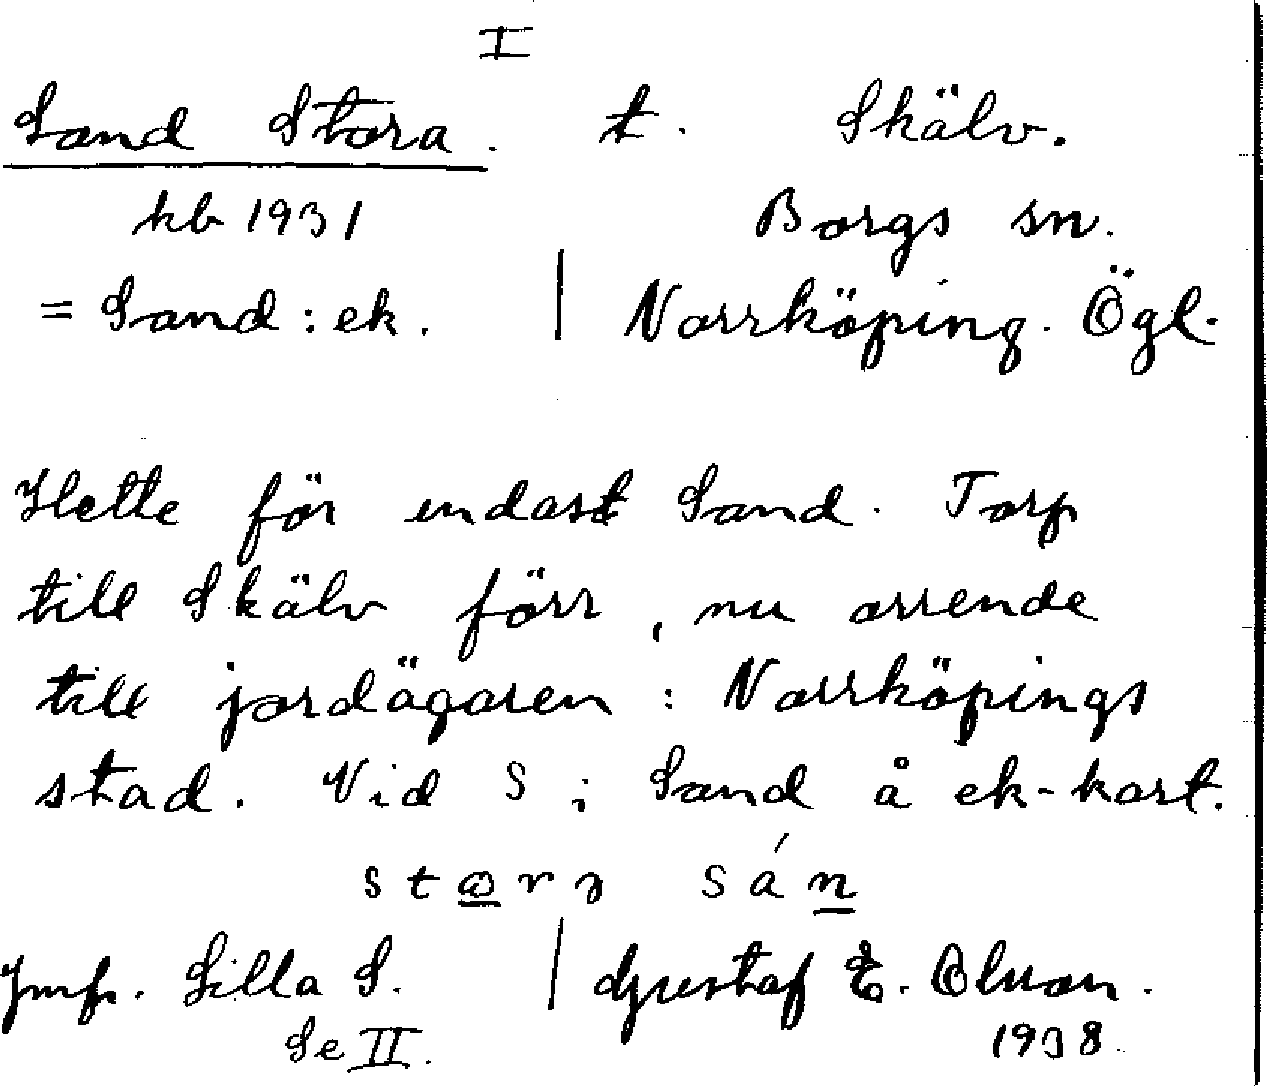 I
Sand Stora. t. Skälv.
kb 1931 Borgs sn.
= Sand: ek. | Norrköping. Ögl.
Hette för endast Sand. Torp
till Skälv förr, nu arrende
till jordägaren: Norrköpings
stad. Vid S i Sand å ek-kart.
sán
Jmfr. Lilla S. | Gustaf E. Olson.
Se II. 1938.